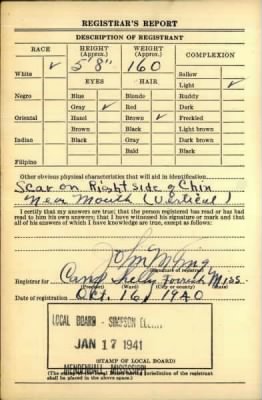 REGISTRAR'S REPORT
DESCRIPTION OF REGISTRANT
RACE HEIGHT (Approx.) WEIGHT (Approx.) COMPLEXION
5' 8" 160
White ✓ EYES HAIR Sallow
Light ✓
Negro Blue Blonde Ruddy
Gray ✓ Red Dark
Oriental Hazel Brown ✓ Freckled
Brown Black Light brown
Indian Black Gray Dark brown
Bald Black
Filipino
Other obvious physical characteristics that will aid in identification
Scar on Right side of Chin
Near Mouth (Vertical)
I certify that my answers are true; that the person registered has read or has had
read to him his own answers; that I have witnessed his signature or mark and that
all of his answers of which I have knowledge are true, except as follows:
John M
(Signature of registrar)
Registrar for Camp Shelby Forrest Miss
(Precinct) (Ward) (City or county) (State)
Date of registration Oct. 16, 1940
LOCAL BOARD - SIMPSON
JAN 17 1941
MENDENHALL, MISSISSIPPI
(STAMP OF LOCAL BOARD)
(The stamp of the Local Board having jurisdiction of the registrant
shall be placed in the above space.)